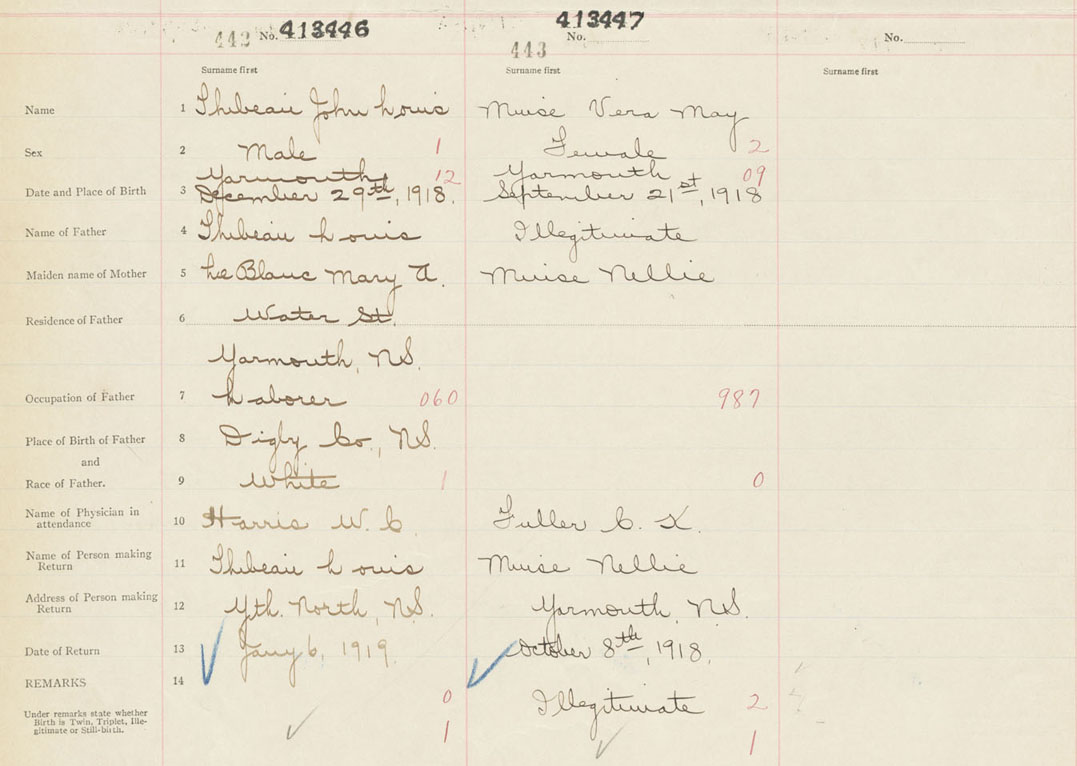 442 No. 413446
413447
443 No.
No.
Surname first
Surname first
Surname first
Name 1 Thibeau John Louis Muise Vera May
Sex 2 Male 1 Female 2
Yarmouth 12 Yarmouth 09
Date and Place of Birth 3 December 29th, 1918. September 21st, 1918
Name of Father 4 Thibeau Louis Illegitimate
Maiden name of Mother 5 Le Blanc Mary A. Muise Nellie
Residence of Father 6 Water St.
Yarmouth, NS.
Occupation of Father 7 Laborer 060 987
Place of Birth of Father 8 Digby Co., NS.
and
Race of Father. 9 White 1 0
Name of Physician in
attendance 10 Harris W. C. Fuller C. K.
Name of Person making
Return 11 Thibeau Louis Muise Nellie
Address of Person making
Return 12 Yth. North, NS. Yarmouth, NS.
Date of Return 13 Jany 6, 1919. October 8th, 1918,
REMARKS 14
0 Illegitimate 2
Under remarks state whether
Birth is Twin, Triplet, Ille-
gitimate or Still-birth.
1 1